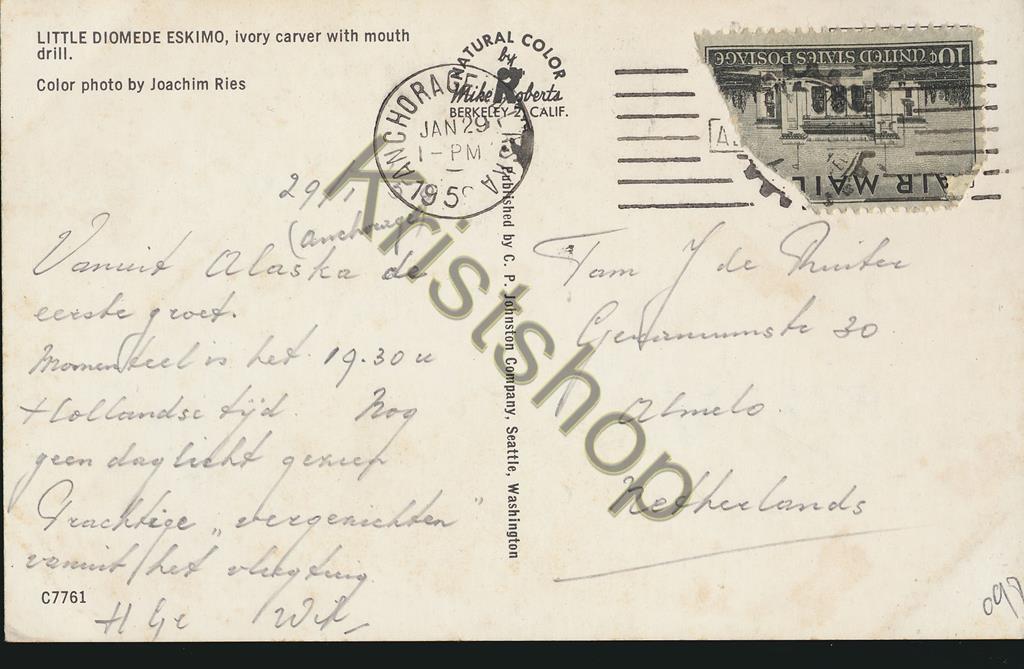 LITTLE DIOMEDE ESKIMO, ivory carver with mouth
drill.
Color photo by Joachim Ries
NATURAL COLOR
by
Mike Roberts
BERKELEY 2, CALIF.
ANCHORAGE
JAN 29
1-PM
195
10¢ UNITED STATES POSTAGE
AIR MAIL
29/1
(Anchorage)
Vanuit Alaska de
eerste groet.
Momenteel is het 19.30 u
Hollandse tijd. Nog
geen daglicht gezien
Prachtige „vergezichten"
vanuit het vliegtuig
C7761
Published by C. P. Johnston Company, Seattle, Washington
Fam J de Ruiter
30
Almelo.
Netherlands
Kristshop